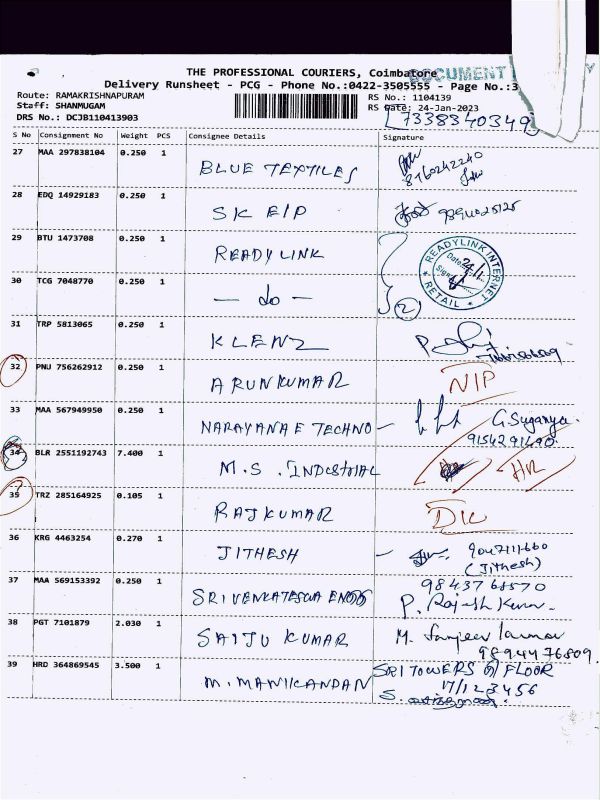 THE PROFESSIONAL COURIERS, Coimbatore
DOCUMENT
Delivery Runsheet - PCG - Phone No.:0422-3505555 - Page No.:3
Route: RAMAKRISHNAPURAM
RS No.: 1104139
Staff: SHANMUGAM
RS Date: 24-Jan-2023
DRS No.: DCJB110413903
7338340349
S No Consignment No Weight PCS Consignee Details Signature
27 MAA 297838104 0.250 1
BLUE TEXTILES
8760242240
28 EDQ 14929183 0.250 1
SK E/P
29 BTU 1473708 0.250 1
READYLINK
READYLINK INTERNET
Date: 24/1
Sign
RETAIL
30 TCG 7048770 0.250 1
— do —
2
31 TRP 5813065 0.250 1
KLENZ
32 PNU 756262912 0.250 1
ARUNKUMAR
N/P
33 MAA 567949950 0.250 1
NARAYANAE TECHNO –
G. Suganya.
9154291490
34 BLR 2551192743 7.400 1
M.S. INDUSTRIAL
HR
35 TRZ 285164925 0.105 1
RAJKUMAR
D/L
36 KRG 4463254 0.270 1
JITHESH
9047111660
(Jithesh)
37 MAA 569153392 0.250 1
SRI VENKATESWA ENGG
9843768570
P. Rajesh Kumar.
38 PGT 7101879 2.030 1
SAIJU KUMAR
M. Sanjeev kumar
9894476809.
39 HRD 364869545 3.500 1
M. MANIKANDAN
SRI TOWERS G/ FLOOR
17/123456
S.